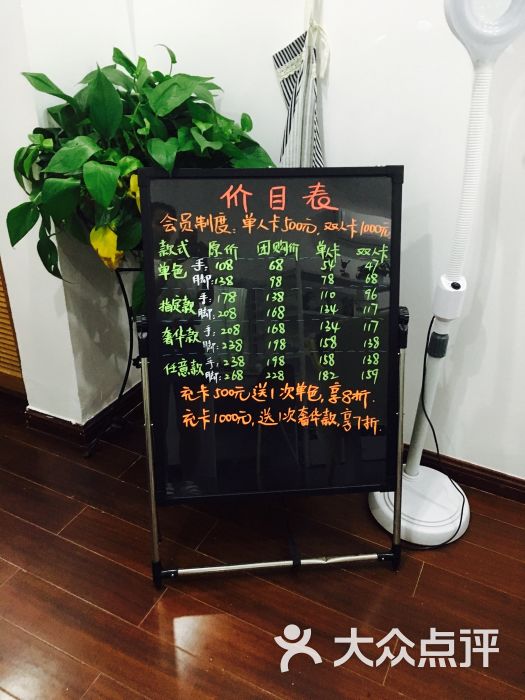 价目表
会员制度:单人卡500元,双人卡1000元
款式 原价 团购价 单人卡 双人卡
单色 手:108 68 54 47
脚:138 98 78 68
指定款 手:178 138 110 96
脚:208 168 134 117
奢华款 手:208 168 134 117
脚:238 198 158 138
任意款 手:238 198 158 138
脚:268 228 182 159
充卡500元送1次单色,享8折.
充卡1000元,送1次奢华款,享7折.
大众点评